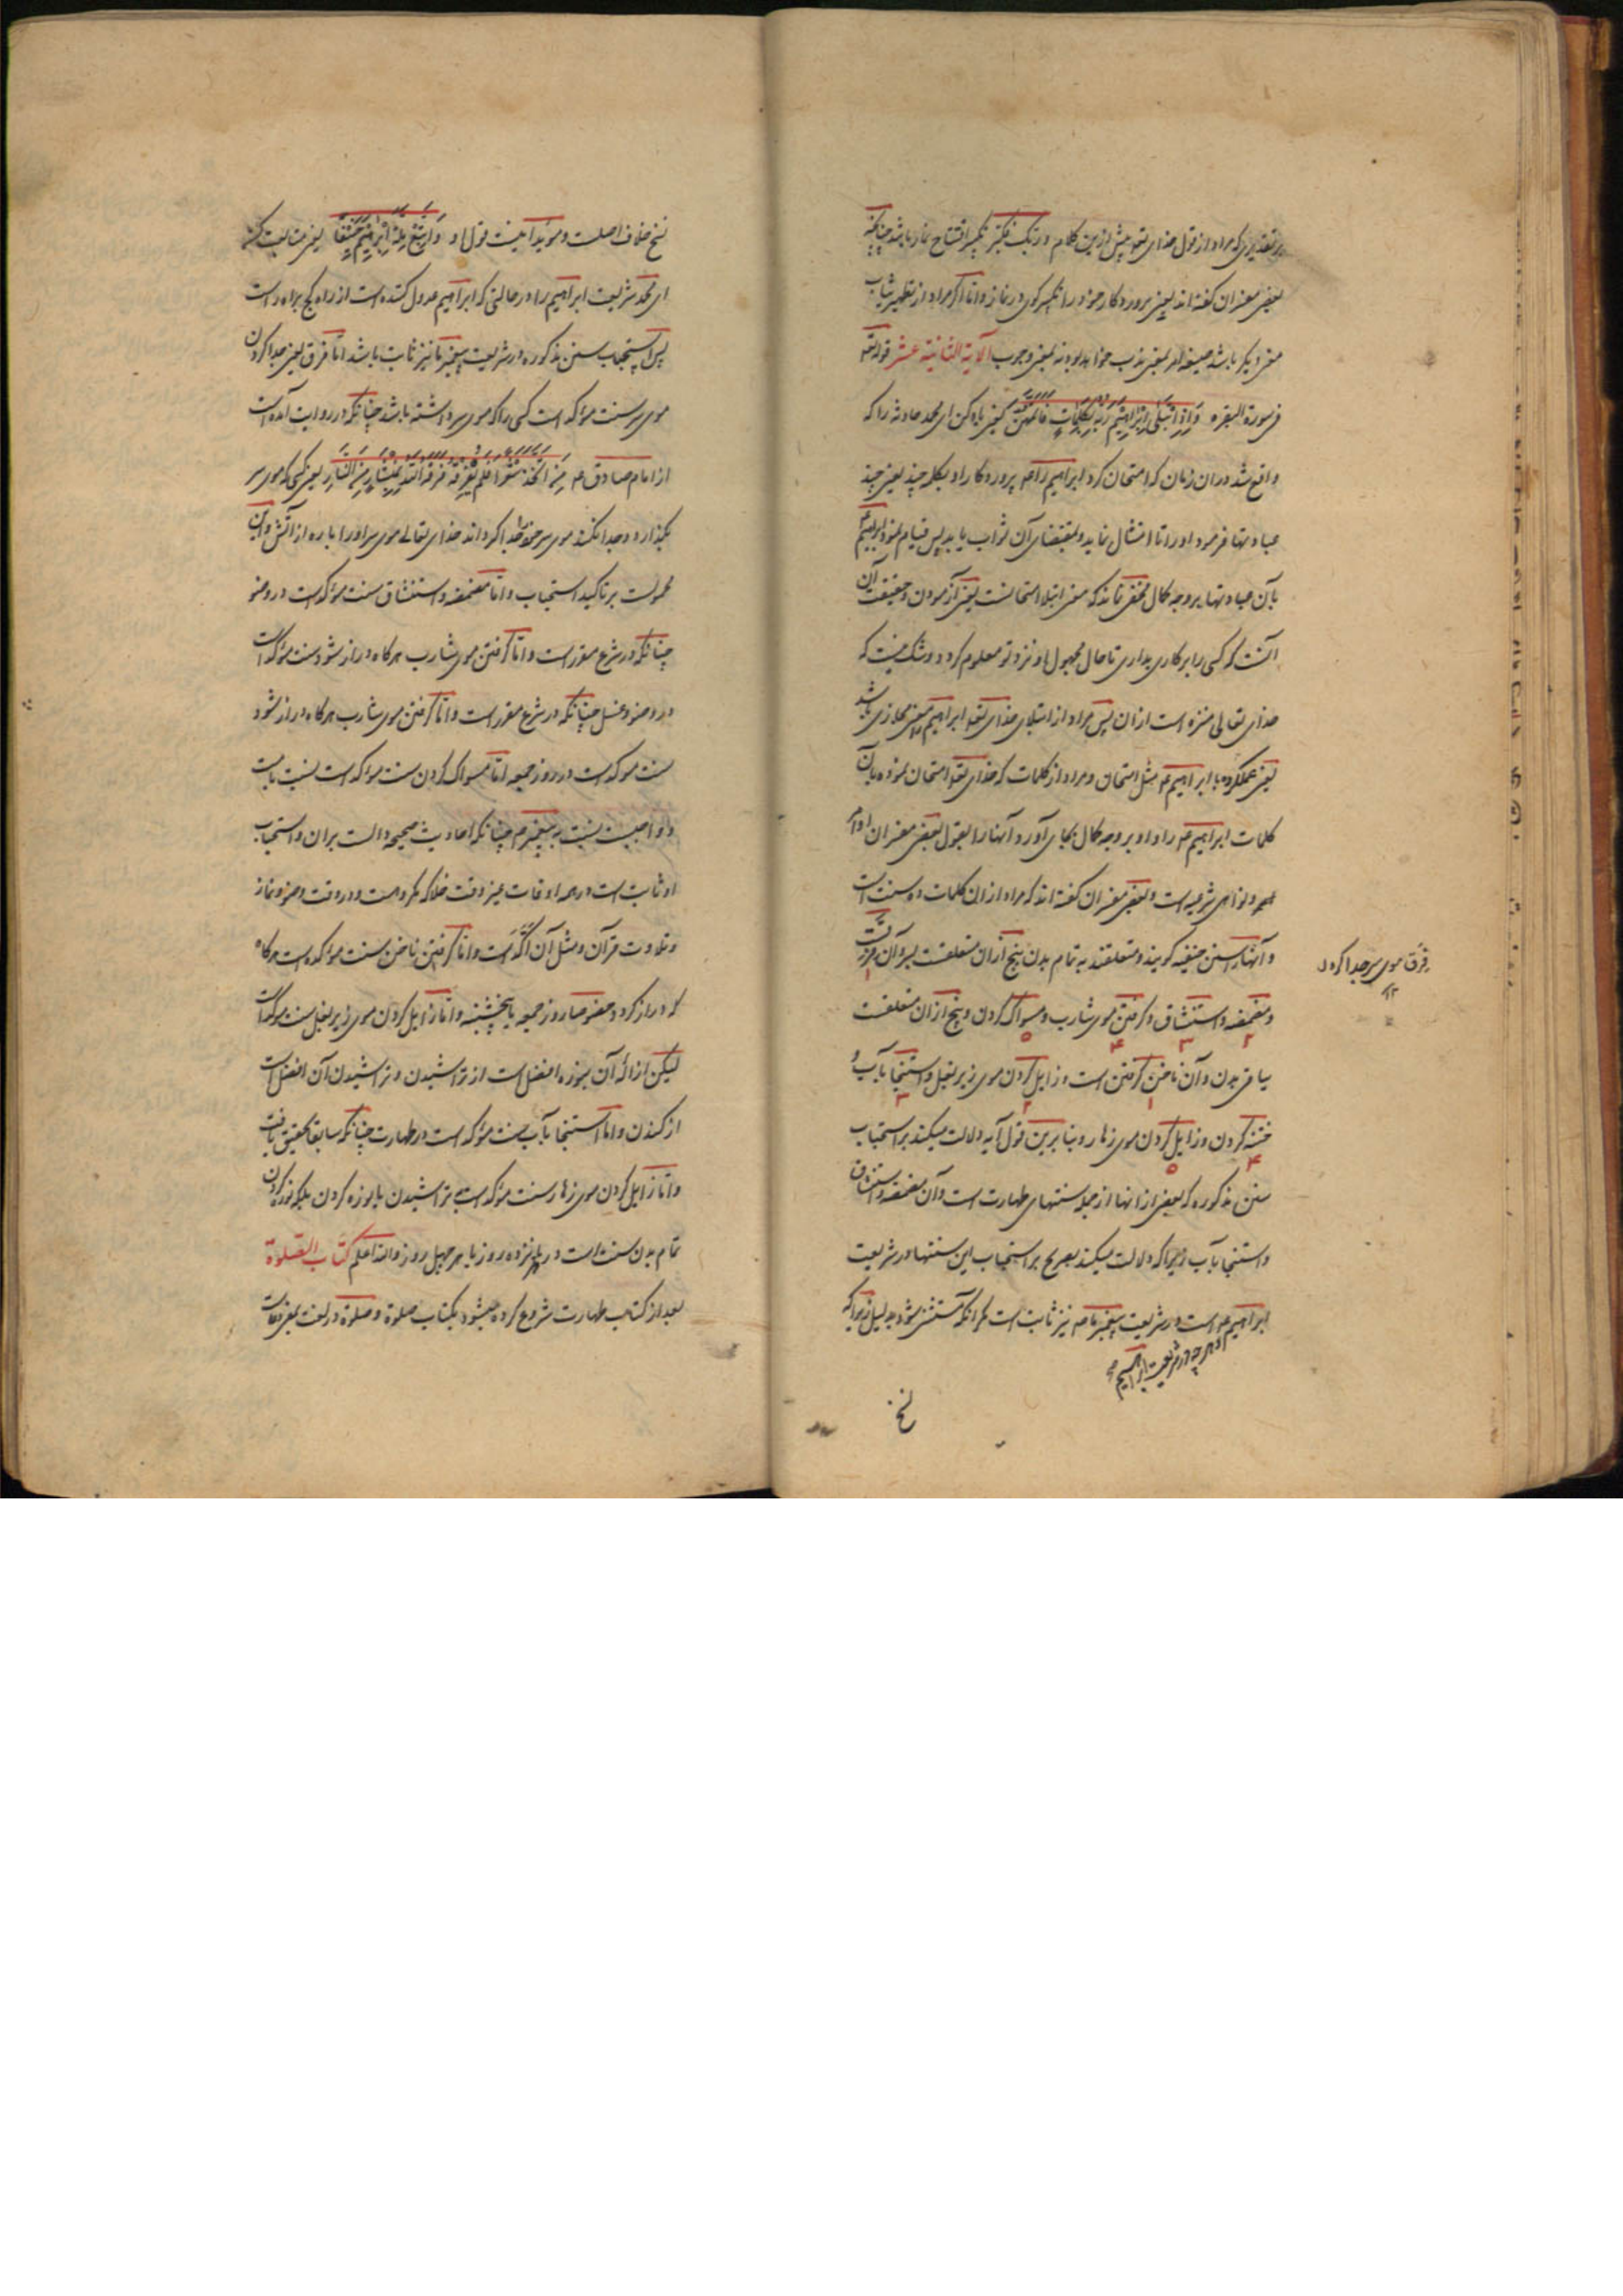 بر تقدیری که مراد از قول خدای تعه پیش ازین کلام و ربک فکبر تکبیر افتتاح نماز باشد چنانکه
بعضی مفسران گفته اند یعنی پروردکار خود را تکبیر کوی در نماز و اما اکر مراد از تطهیر ثیاب
معنی دیکر باشد صیغه امر بمعنی ندب خواهد بود نه بمعنی وجوب الآیة الثانیة عشر قوله تعه
فی سورة البقره وَاِذِ ابْتَلٰی اِبْرٰاهیمَ رَبُّهُ بِکَلِمٰاتٍ فَاَتَمَّهُنَّ یعنی یاد کن ای محمد حادثه را که
واقع شد در ان زمان که امتحان کرد ابراهیم را عه پروردکار او بکلمه چند یعنی چند
عبادتها فرمود او را تا امتثال نماید و بمقتضای آن ثواب یابد پس قیام نمود ابراهیم ع
بآن عبادتها بر وجه کمال مخفی نماند که معنی ابتلا امتحانست یعنی آزمودن و حقیقت آن
آنست که کسی را بر کاری بداری تا حال مجهول او نزد تو معلوم کردد و شک نیست که
خدای تعالی منزه است از ان پس مراد از ابتلای خدای تعه ابراهیم را معنی مجازی باشد
یعنی عملکرده با ابراهیم عه مثل امتحان و مراد از کلمات که خدای تعه امتحان نموده بآن
کلمات ابراهیم عه را و او بر وجه کمال بجای آورد آنها را بقول بعضی مفسران اوامر
و نواهی شرعیه است و بعضی مفسران کفته اند که مراد از ان کلمات ده سنت است
و آنها را سنن حنیفیه کویند و متعلقند به تمام بدن پنج از ان متعلقست بسر و آن فرقست ۱
و مضمضه ۲ و استنشاق ۳ و کرفتن موی شارب ۴ و مسواک کردن ۵ و پنج از ان متعلقست
بباقی بدن و آن ناخن کرفتن است ۱ و زایل کردن موی زیر بغل ۲ و استنجا بآب ۳ و
ختنه کردن ۴ و زایل کردن موی زهار ۵ و بنا برین قول آیه دلالت میکند بر استحباب
سنن مذکوره که بعضی از انها از جمله سنتهای طهارت است و آن مضمضه و استنشاق
و استنجا بآب زیرا که دلالت میکند بصریح بر استحباب این سنتها در شریعت
ابراهیم عه است در شریعت پیغمبر ما صه نیز ثابت است مکر انکه مستثنی شود بدلیل زیرا که
و هر چه در شریعت ابراهیم
نسخ
فرق موی سر جدا کردن ۱۲
نسخ خلاف اصلست و موید اینست قول او وَاتَّبِعْ مِلَّةَ اِبْرٰاهیمَ حَنیفًا یعنی متابعت کن
ای محمد شریعت ابراهیم را در حالتی که ابراهیم عدول کننده است از راه کج براه راست
پس استحباب سنن مذکوره در شریعت پیغمبر ما نیز ثابت باشد اما فرق یعنی جدا کردن
موی سر سنت مؤکد است کسی را که موی سر داشته باشد چنانکه در روایت آمده است
از امام صادق عه مَنِ اتَّخَذَ شَعْرًا فَلَمْ یُفَرِّقْهُ فَرَقَهُ اللّٰهُ بِمِنْشٰارٍ مِنَ النّٰارِ یعنی کسی که موی سر
بکذارد و جدا نکند موی سر خود را جدا کرداند خدای تعالی موی سر او را باره از آتش و این
محمولست بر تاکید استحباب و اما مضمضه و استنشاق سنت مؤکد است در وضو
چنانکه در شرع مقرر است و اما کرفتن موی شارب هر کاه دراز شود سنت مؤکد است
در وضو و غسل چنانکه در شرع مقرر است و اما کرفتن موی شارب هر کاه دراز شود
سنت موکد است در روز جمعه اما مسواک کردن سنت مؤکد است نسبت بامت
و واجبست نسبت به پیغمبر م چنانکه احادیث صحیحه دالست بران و استحباب
او ثابت است در همه اوقات غیر وقت خلا که مکروهست و در وقت وضو و نماز
و تلاوت قرآن و مثل آن آکد است و اما کرفتن ناخن سنت مؤکده است هر کاه
که دراز کردد خصوصا روز جمعه یا پنجشنبه و اما زایل کردن موی زیر بغل سنت موکد است
لیکن ازالهٔ آن بنوره افضل است از تراشیدن و تراشیدن آن افضل است
از کندن و اما استنجا بآب سنت مؤکد است در طهارت چنانکه سابقا تحقیق یافت
و اما زایل کردن موی زهار سنت مؤکد است بتراشیدن یا بنوره کردن بلکه نوره کردن
تمام بدن سنت است در هر پانزده روز یا هر چهل روز والله اعلم کتاب الصلوة
بعد از کتاب طهارت شروع کرده میشود بکتاب صلوة و صلوة در لغت بمعنی دعاست